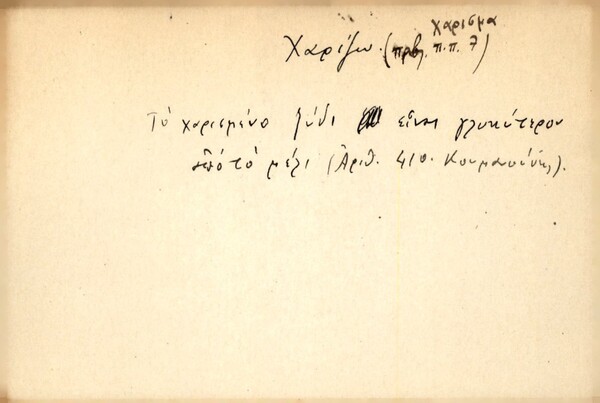 χάρισμα
Χαρίζω (πρβ. π.π. 7)
Τὸ χαρισμένο ξύδι εἶναι γλυκύτερον
ἀπὸ τὸ μέλι (Ἀριθ. 410. Κουμανούδης).